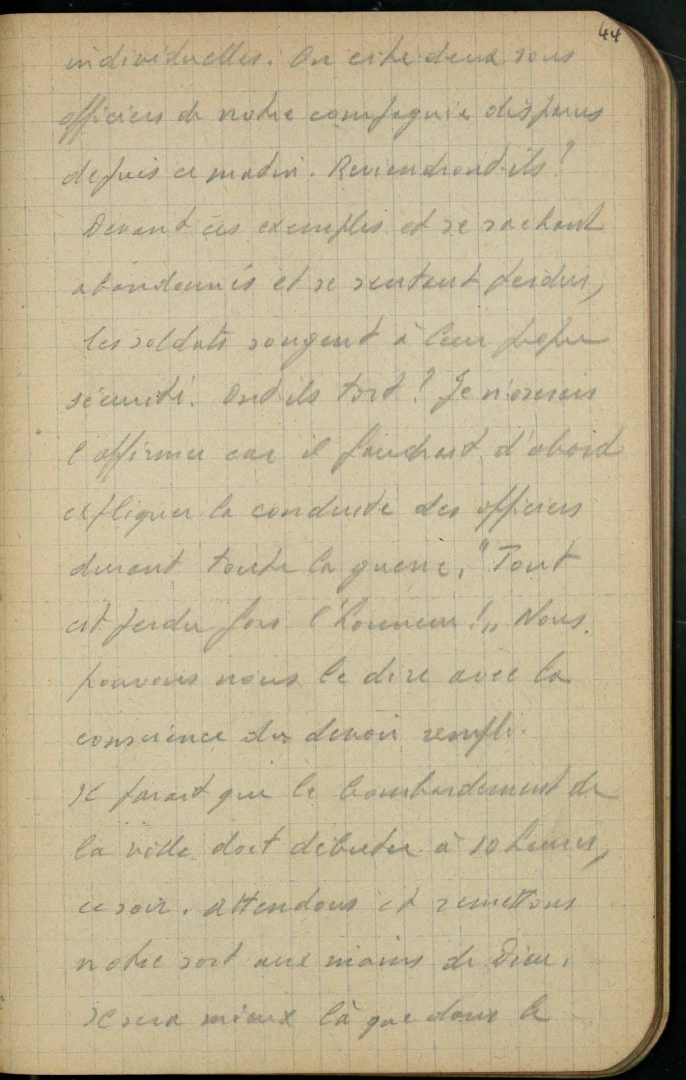 44
individuelles. On cite deux sous
officiers de notre compagnie disparus
depuis ce matin. Reviendront-ils ?
Devant ces exemples et se sachant
abandonnés et se sentant perdus,
les soldats songent à leur propre
sécurité. Ont ils tort ? Je n'oserais
l'affirmer car il faudrait d'abord
expliquer la conduite des officiers
durant toute la guerre. "Tout
est perdu fors l'honneur !„ Nous
pouvons nous le dire avec la
conscience du devoir rempli.
Il parait que le bombardement de
la ville doit débuter à 10 heures,
ce soir. Attendons et remettons
notre sort aux mains de Dieu.
Il sera mieux là que dans le